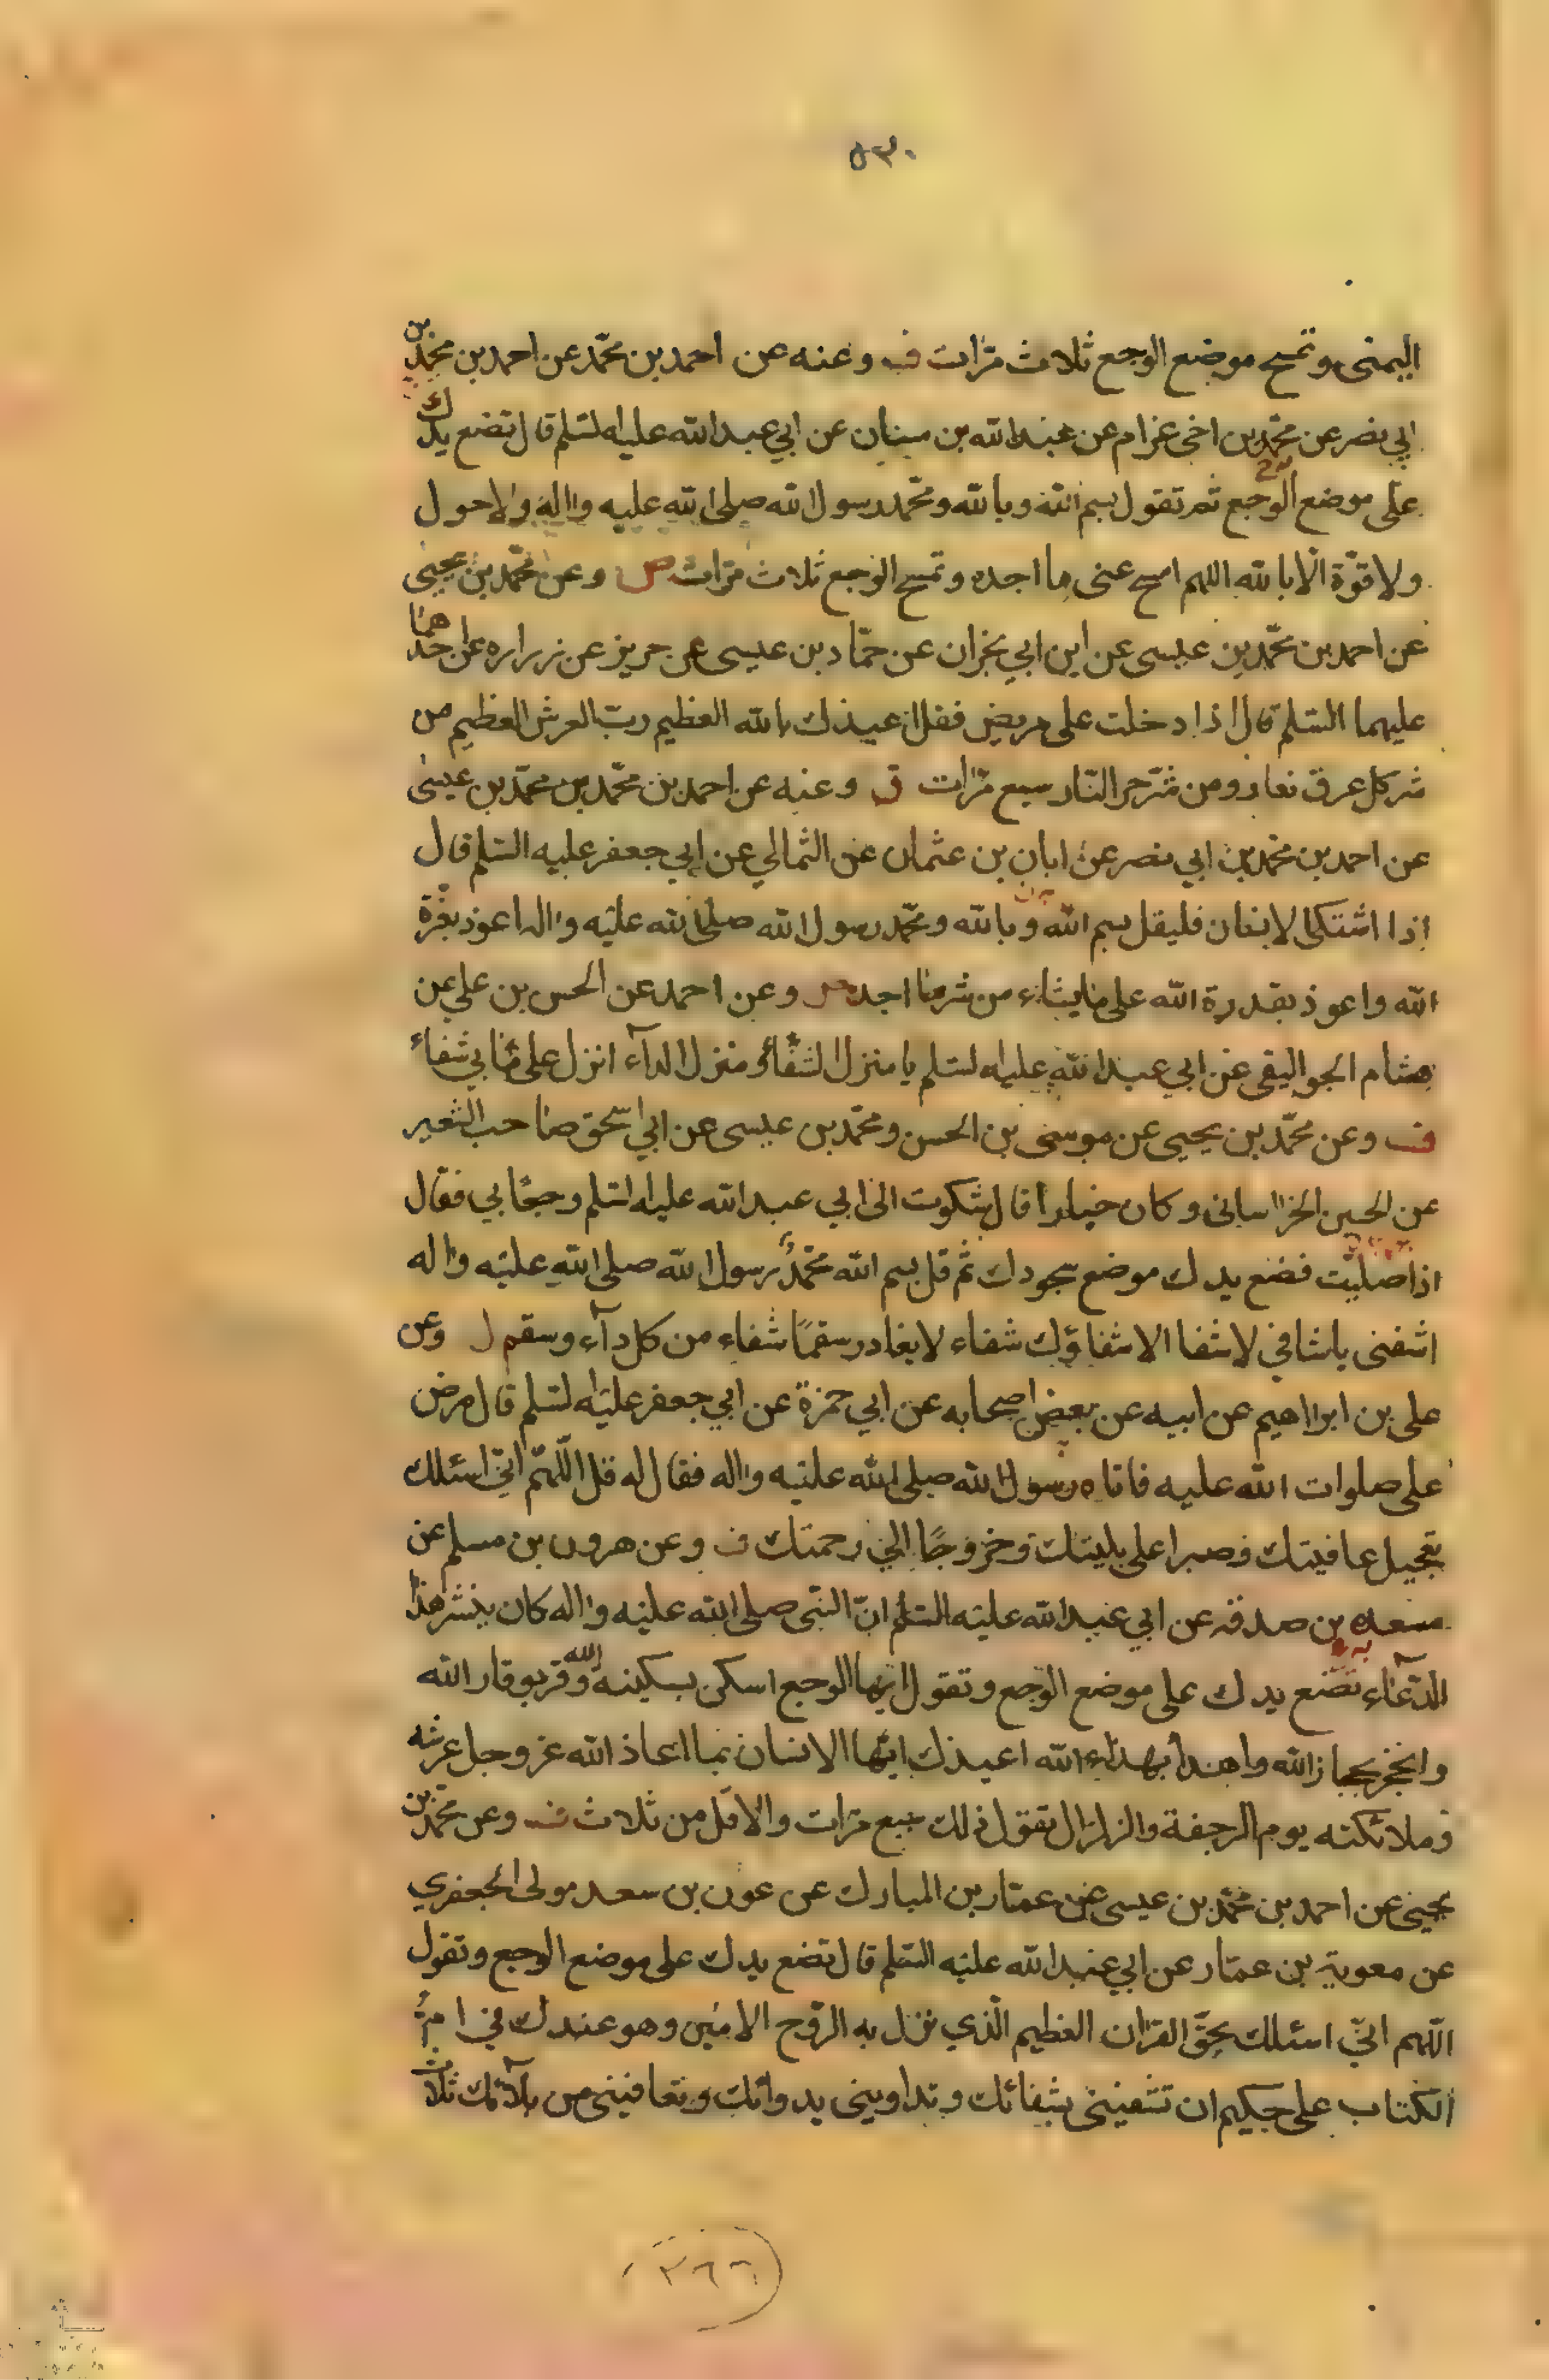 ٥٣٠
اليمنى وتمسح موضع الوجع ثلاث مرّات ف وعنه عن احمد بن محمّد عن احمد بن محمّد بن
ابي نصر عن محمّد بن اخى غرام عن عبد الله بن سنان عن ابي عبد الله عليه السّلم قال تضع يدك
على موضع الوجع ثم تقول بسم الله وبالله ومحمّد رسول الله صلى الله عليه واله ولا حول
ولا قوّة الّا بالله اللهم امسح عنى ما اجد وتمسح الوجع ثلاث مرّات وعن محمّد بن يحيى
عن احمد بن محمّد بن عيسى عن ابن ابي نجران عن حمّاد بن عيسى عن حريز عن زراره عن احدهما
عليهما السّلم قال اذا دخلت على مريض فقل اعيذك بالله العظيم ربّ العرش العظيم من
شر كل عرق نعار ومن شرّ حر النّار سبع مرّات ف وعنه عن احمد بن محمّد بن محمّد بن عيسى
عن احمد بن محمّد بن ابي نصر عن ابان بن عثمان عن الثمالي عن ابي جعفر عليه السّلم قال
اذا اشتكى الانسان فليقل بسم الله وبالله ومحمّد رسول الله صلى الله عليه واله اعوذ بعزّة
الله واعوذ بقدرة الله على ما يشاء من شر ما اجد وعن احمد عن الحسن بن علي عن
هشام الجواليقى عن ابي عبد الله عليه السلم يا منزل الشفاء ومنزل الدآء انزل على ما بي شفاء
ف وعن محمّد بن يحيى عن موسى بن الحسن ومحمّد بن عيسى عن ابي اسحق صاحب الشعير
عن الحسين الخراسانى وكان خبازا قال شكوت الى ابي عبد الله عليه السّلم وجعًا بي فقال
اذا صلّيت فضع يدك موضع سجودك ثم قل بسم الله محمّد رسول الله صلى الله عليه واله
اشفنى يا شافي لا شفا الا شفاؤك شفاء لا يغادر سقمًا شفاء من كل دآء وسقم ل وعن
على بن ابراهيم عن ابيه عن بعض اصحابه عن ابي حمزة عن ابي جعفر عليه السلم قال مرض
على صلوات الله عليه فاتاه رسول الله صلى الله عليه واله فقال له قل اللّهمّ انّي اسئلك
تعجيل عافيتك وصبرا على بليتك وخروجًا الي رحمتك ف وعن هرون بن مسلم عن
مسعده بن صدقه عن ابي عبد الله عليه السّلم انّ النّبى صلى الله عليه واله كان ينشر هذا
الدّعاء تضع يدك على موضع الوجع وتقول ايّها الوجع اسكن بسكينة الله وقر بوقار الله
وانحجز بحجاز الله واهدأ بهداء الله اعيذك ايّها الانسان بما اعاذ الله عز وجل عرشه
وملائكته يوم الرجفة والزلزال تقول ذلك سبع مرّات والا قل من ثلاث ف وعن محمّد بن
يحيى عن احمد بن محمّد بن عيسى عن عمّار بن المبارك عن عون بن سعد مولى الجعفري
عن معوية بن عمّار عن ابي عبد الله عليه السّلم قال تضع يدك على موضع الوجع وتقول
اللّهم انّي اسئلك بحقّ القران العظيم الّذي نزل به الرّوح الامين وهو عندك في ام
الكتاب على حكيم ان تشفينى بشفائك وتداوينى بدوائك وتعافينى من بلآئك ثلاث
٢٦٦